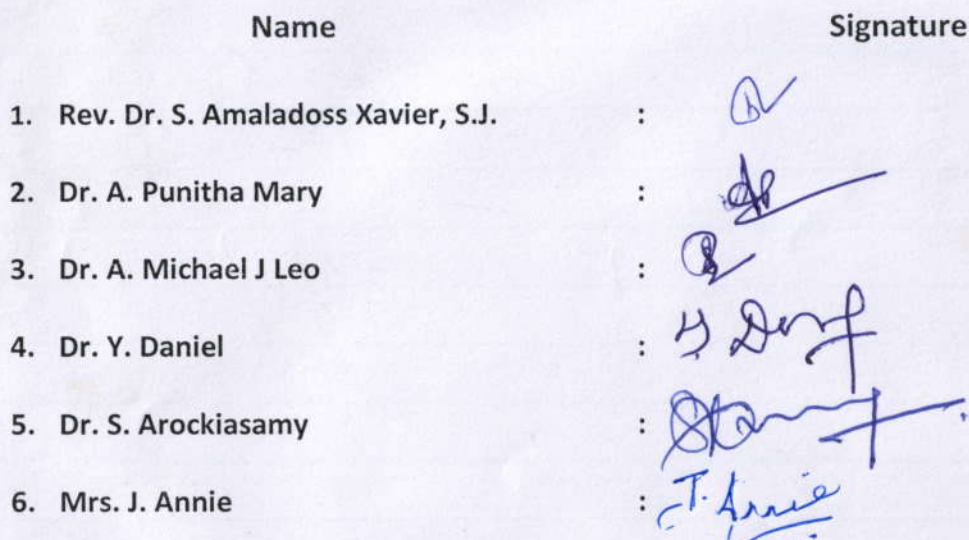 Name Signature
1. Rev. Dr. S. Amaladoss Xavier, S.J. :
2. Dr. A. Punitha Mary :
3. Dr. A. Michael J Leo :
4. Dr. Y. Daniel :
5. Dr. S. Arockiasamy :
6. Mrs. J. Annie : J. Annie